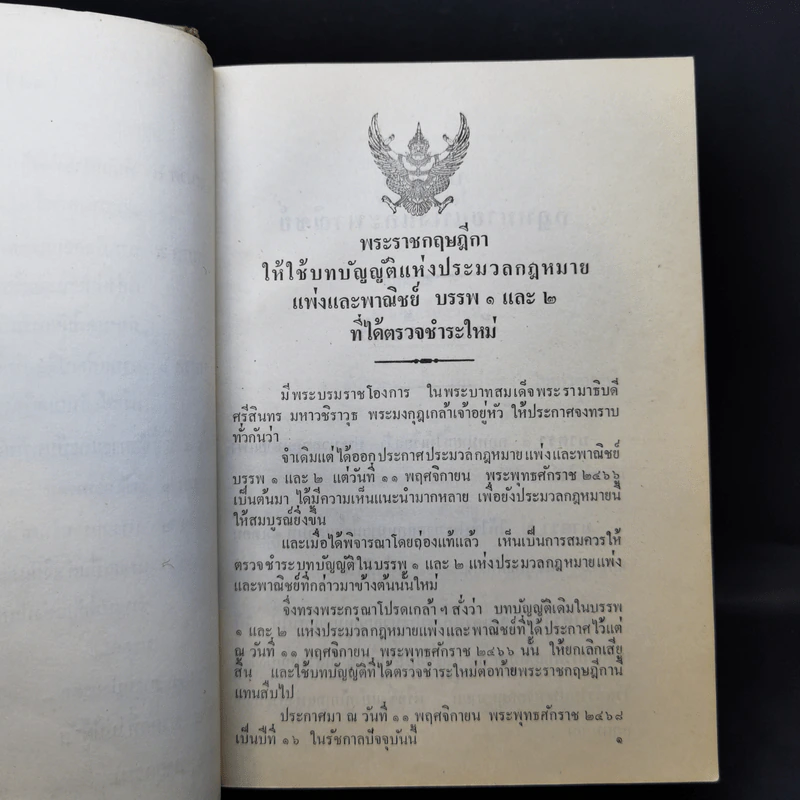 พระราชกฤษฎีกา
ให้ใช้บทบัญญัติแห่งประมวลกฎหมาย
แพ่งและพาณิชย์ บรรพ ๑ และ ๒
ที่ได้ตรวจชำระใหม่
มีพระบรมราชโองการ ในพระบาทสมเด็จพระรามาธิบดี
ศรีสินทร มหาวชิราวุธ พระมงกุฎเกล้าเจ้าอยู่หัว ให้ประกาศจงทราบ
ทั่วกันว่า
จำเดิมแต่ได้ออกประกาศประมวลกฎหมายแพ่งและพาณิชย์
บรรพ ๑ และ ๒ แต่วันที่ ๑๑ พฤศจิกายน พระพุทธศักราช ๒๔๖๖
เป็นต้นมา ได้มีความเห็นแนะนำมากหลาย เพื่อยังประมวลกฎหมายนี้
ให้สมบูรณ์ยิ่งขึ้น
และเมื่อได้พิจารณาโดยถ่องแท้แล้ว เห็นเป็นการสมควรให้
ตรวจชำระบทบัญญัติในบรรพ ๑ และ ๒ แห่งประมวลกฎหมายแพ่ง
และพาณิชย์ที่กล่าวมาข้างต้นนั้นใหม่
จึ่งทรงพระกรุณาโปรดเกล้า ฯ สั่งว่า บทบัญญัติเดิมในบรรพ
๑ และ ๒ แห่งประมวลกฎหมายแพ่งและพาณิชย์ที่ได้ประกาศไว้แต่
ณ วันที่ ๑๑ พฤศจิกายน พระพุทธศักราช ๒๔๖๖ นั้น ให้ยกเลิกเสีย
สิ้น และใช้บทบัญญัติที่ได้ตรวจชำระใหม่ต่อท้ายพระราชกฤษฎีกานี้
แทนสืบไป
ประกาศมา ณ วันที่ ๑๑ พฤศจิกายน พระพุทธศักราช ๒๔๖๘
เป็นปีที่ ๑๖ ในรัชกาลปัจจุบันนี้
๑